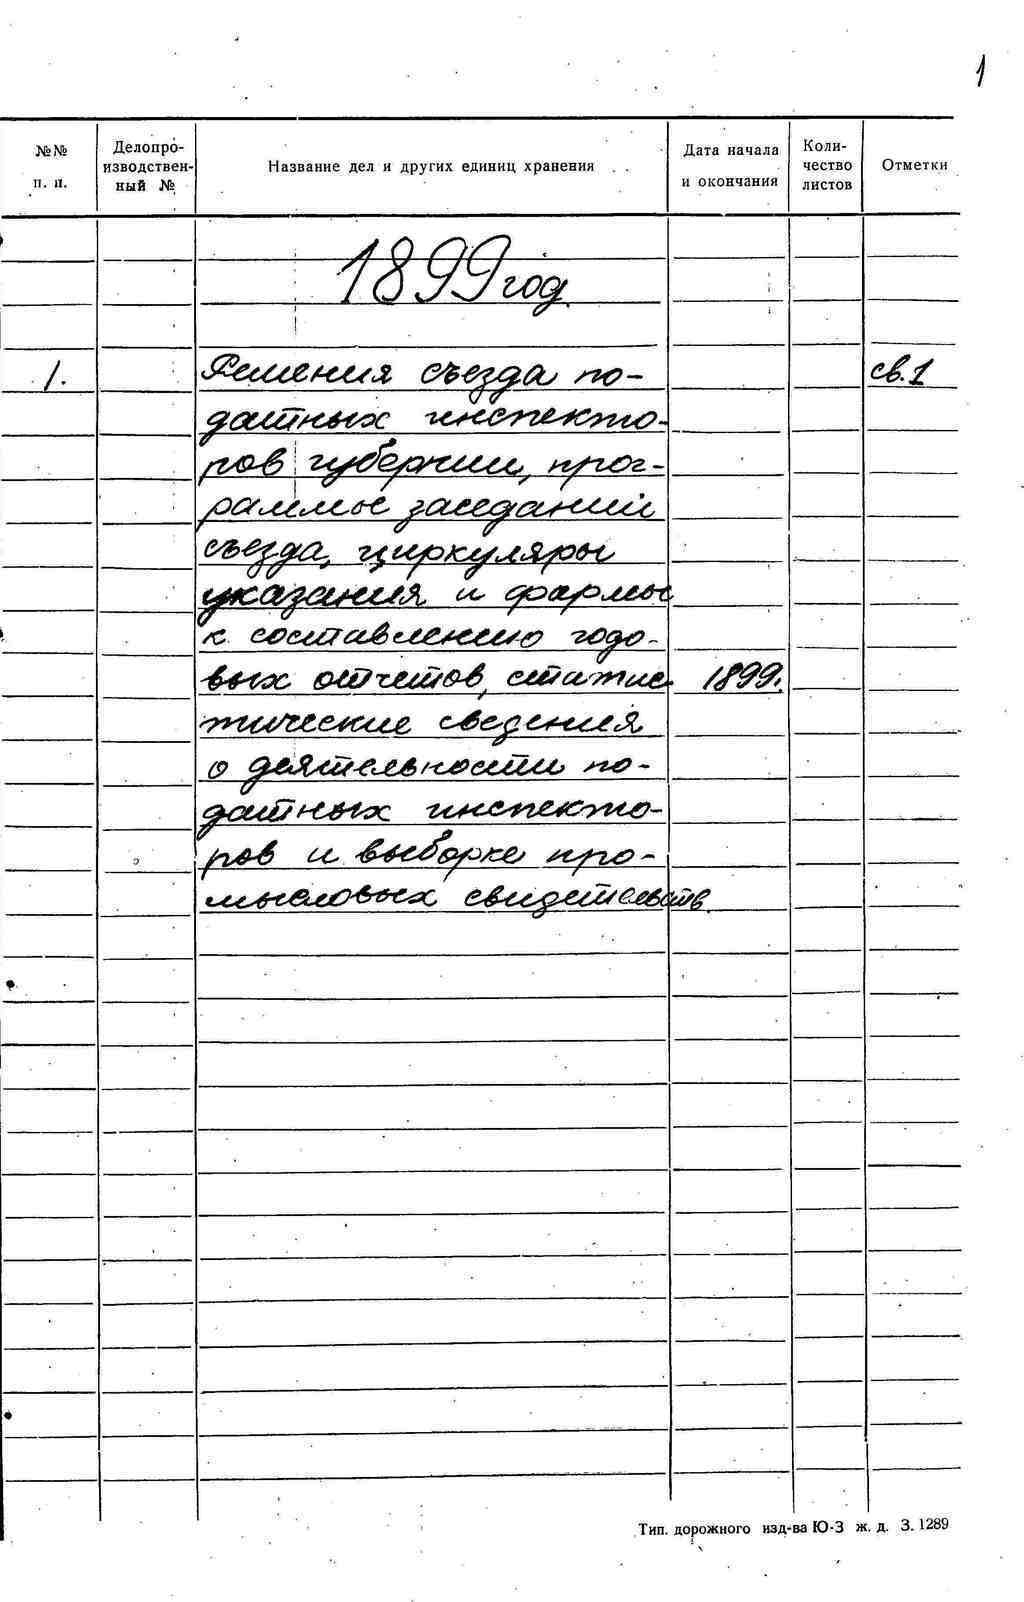 1
№№ п. п.
Делопро-
изводствен-
ный №
Название дел и других единиц хранения
Дата начала
и окончания
Коли-
чество
листов
Отметки
1899 год.
1. Решения съезда по- св. 1
датных инспекто-
ров губернии, прог-
раммы заседаний
съезда, циркуляры
указания и формы
к составлению годо-
вых отчетов, статис 1899.
тические сведения
о деятельности по-
датных инспекто-
ров и выборке про-
мысловых свидетельств.
Тип. дорожного изд-ва Ю-З ж. д. З. 1289